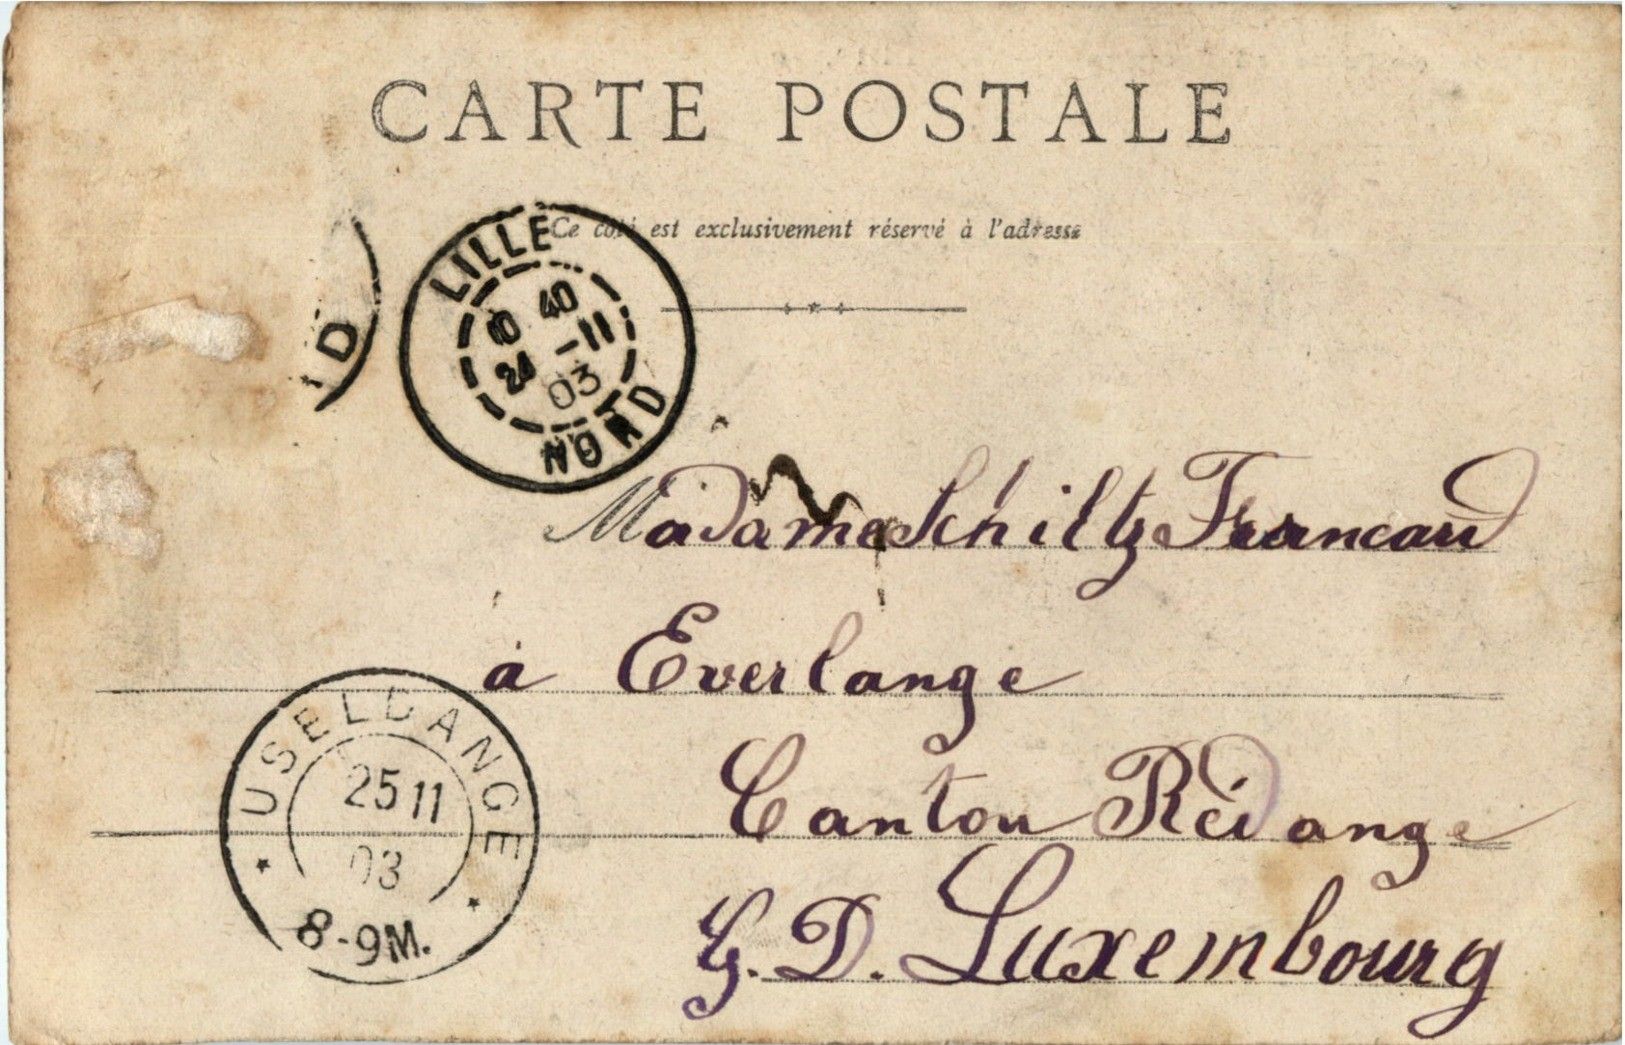 CARTE POSTALE
Ce côté est exclusivement réservé à l'adresse
LILLE
10 40
24 -11
03
NORD
D
Madame Schiltz Francard
à Everlange
Canton Rédange
G. D. Luxembourg
USELDANGE
25 11
03
8-9M.